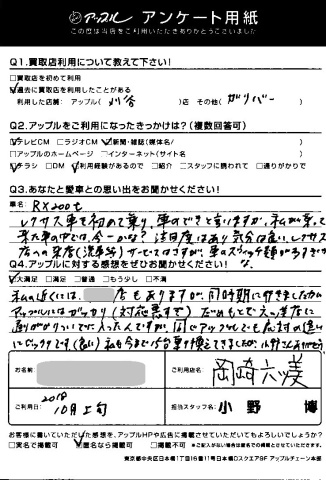 アップル アンケート用紙
この度は当店をご利用いただきありがとうございました
Q1.買取店利用について教えて下さい!
□買取店を初めて利用
☑過去に買取店を利用したことがある
利用した店舗: アップル( 刈谷 )店 その他( ガリバー )
Q2.アップルをご利用になったきっかけは?(複数回答可)
☑テレビCM □ラジオCM ☑新聞・雑誌(媒体名/ )
□アップルのホームページ □インターネット(サイト名 )
☑チラシ □DM ☑利用経験があるので □紹介 □スタッフに誘われて □通りがかりで
Q3.あなたと愛車との思い出をお聞かせください!
車名: RX200t
レクサス車を初めて乗り、車のできと言いますが、私が乗って
来た車の中では、今一かな?注目度はあり気分は良い、レクサス
店への来店(洗車等)サービスはさすが、車の
Q4.アップルに対する感想をぜひお聞かせください!
☑大満足 □満足 □普通 □もう少し □不満
私の近くには、 店もありますが、同時期に行きましたが
アップルにはガッカリ(対応悪すぎ)だめもとで六ッ美店に
通りががりついでに入ったんですが、同じアップルでも応対の違い
にビックリです(良い)
お名前
ご利用店名 岡崎六ッ美
ご利用日: 2018 10月上旬
担当スタッフ名: 小野 博
お客様に書いていただいた感想を、アップルHPや広告に掲載させていただいてもよろしいでしょうか?
□実名で掲載可 ☑匿名なら掲載可 □掲載不可 ※ご記入がない場合は匿名での掲載とさせていただきます。
東京都中央区日本橋1丁目16番11号日本橋Dスクエア9F アップルチェーン本部